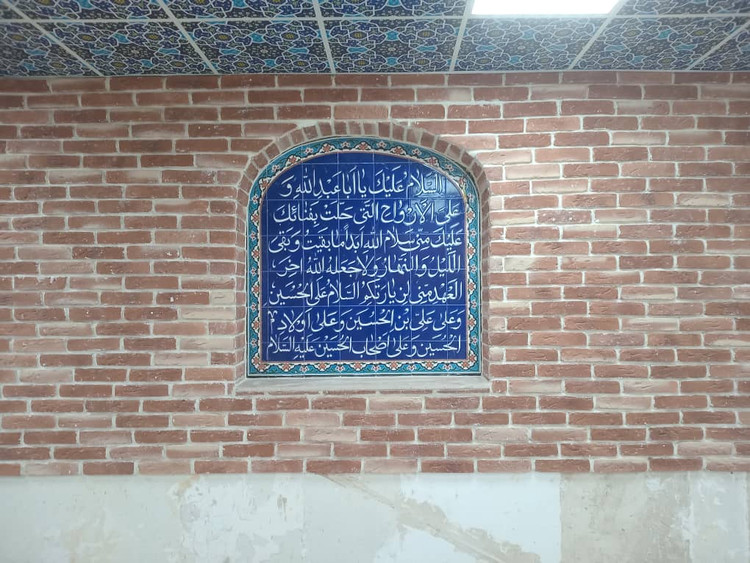 السَّلامُ عَلَيْكَ يا اَبا عَبْدِاللهِ وَ
عَلَى الْاَرْواحِ الَّتى حَلَّتْ بِفِنائِكَ
عَلَيْكَ مِنّى سَلامُ اللهِ اَبَداً ما بَقيتُ وَ بَقِىَ
اللَّيْلُ وَالنَّهارُ وَلا جَعَلَهُ اللهُ اخِرَ
الْعَهْدِ مِنّى لِزِيارَتِكُمْ السَّلامُ عَلَى الْحُسَيْنِ
وَ عَلى عَلِىِّ بْنِ الْحُسَيْنِ وَ عَلى اَوْلادِ
الْحُسَيْنِ وَ عَلى اَصْحابِ الْحُسَيْنِ عَلَيْهِ السَّلام